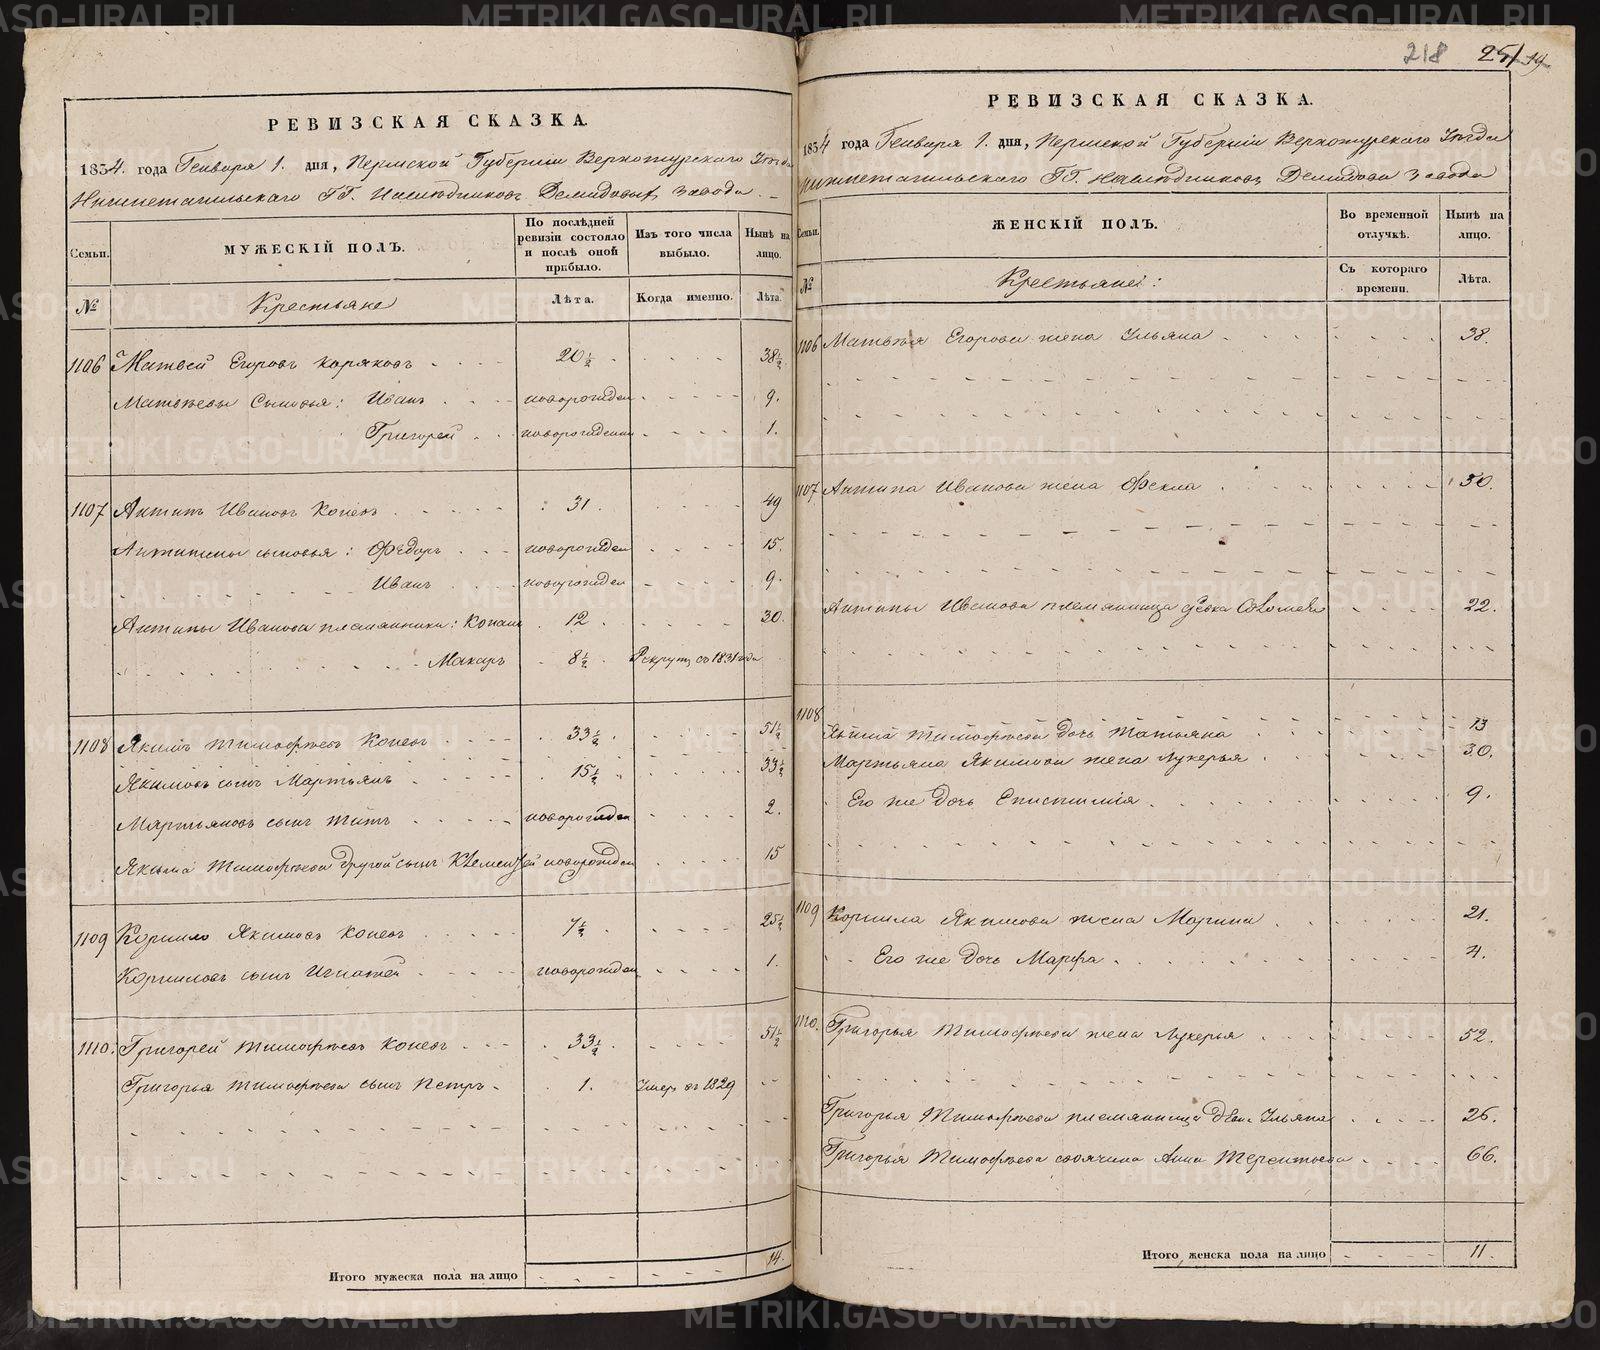 218 251 19
РЕВИЗСКАЯ СКАЗКА.
1834. года Генваря 1. дня, Пермской Губернiи Верхотурскаго Уѣзда
Нижнетагильскаго ГГ. Наслѣдниковъ Демидовыхъ завода
Семьи. МУЖЕСКІЙ ПОЛЪ. По послѣдней ревизіи состояло и послѣ оной прибыло. Изъ того числа выбыло. Нынѣ на лицо.
№ Крестьяне Лѣта. Когда именно. Лѣта.
1106 Матвей Егоровъ Коряковъ 20½ 38½
Матвѣевы Сыновья: Иванъ новорожден 9.
Григорей новорожденн 1.
1107 Антипъ Ивановъ Копевъ 31 49
Антипины сыновья: Федоръ новорожден 15.
Иванъ новорожден 9.
Антипы Иванова племянники: 12 30.
Макаръ 8½ Рекрутъ съ 1831 года
1108 Якимъ Тимофѣевъ Копевъ 33½ 51½
Якимовъ сынъ Мартьянъ 15½ 33½
Мартьяновъ сынъ Титъ новорожден 2.
Якима Тимофѣева другой сынъ новорожден 15
1109 Корнило Якимовъ Копевъ 7½ 25½
Корниловъ сынъ Игнатей новорожден 1.
1110. Григорей Тимофѣевъ Копевъ 33½ 51½
Григорья Тимофѣева сынъ Петръ 1. Умеръ въ 1829
Итого мужеска пола на лицо 14
РЕВИЗСКАЯ СКАЗКА.
1834 года Генваря 1. дня, Пермской Губернiи Верхотурскаго Уѣзда
Нижнетагильскаго ГГ. Наслѣдниковъ Демидовы завода
Семьи. ЖЕНСКІЙ ПОЛЪ. Во временной отлучкѣ. Нынѣ на лицо.
№ Крестьяне: Съ котораго времени. Лѣта.
1106 Матвѣя Егорова жена Ульяна 38.
1107 Антипа Иванова жена Фекла 50.
Антипы Иванова племянница девка 22.
1108
Якима Тимофѣева дочь Татьяна 13
Мартьяна Якимова жена Лукерья 30.
Его же дочь 9.
1109 Корнила Якимова жена Марина 21.
Его же дочь Марфа 4.
1110. Григорья Тимофѣева жена Лукерья 52.
Григорья Тимофѣева племянница Ульяна 26.
Григорья Тимофѣева Анна Терентьева 66.
Итого женска пола на лицо 11.
METRIKI.GASO-URAL.RU